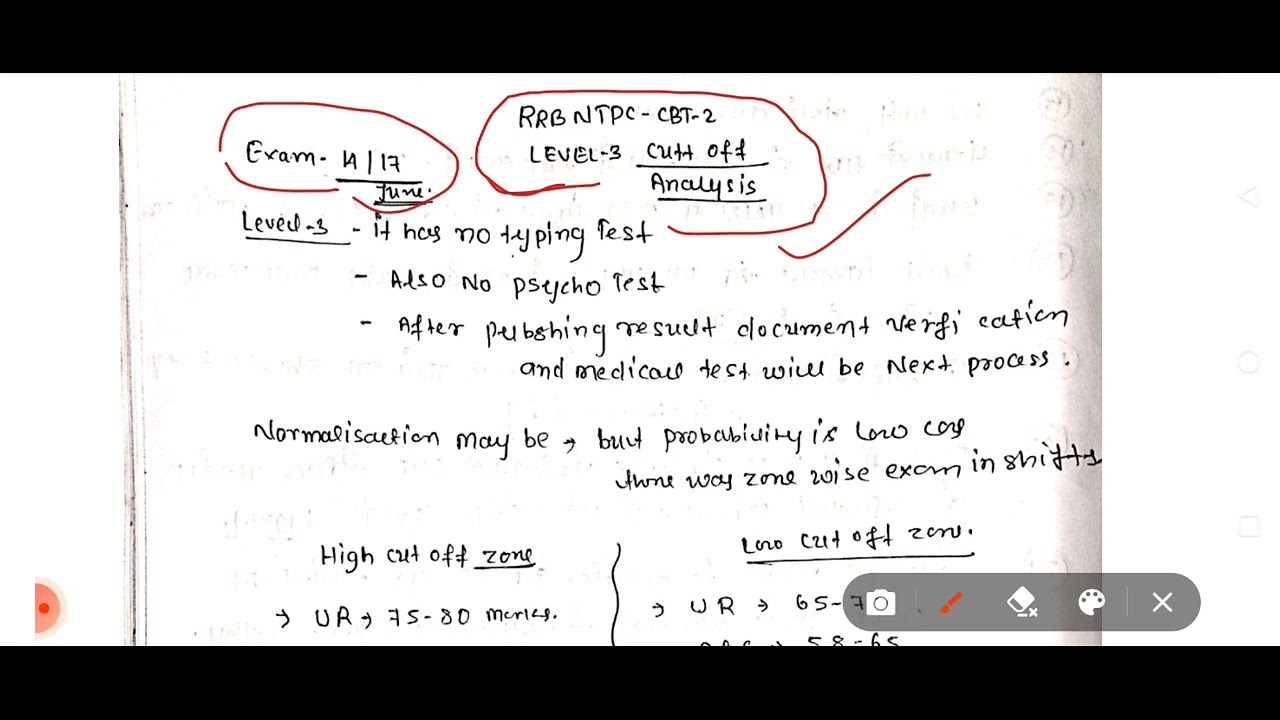 RRB NTPC - CBT-2
LEVEL-3 Cutt off
Analysis
Exam - 14/17
June.
Level-3 - it has no typing Test
- Also No psycho Test
- After result document verfi cation
and medical test will be Next process.
Normalisaction may be → but probability is Low cas
there was zone wise exam in shifts
High cut off zone
→ UR → 75-80 marks.
Low cut off zone.
→ UR → 65-7
58-65